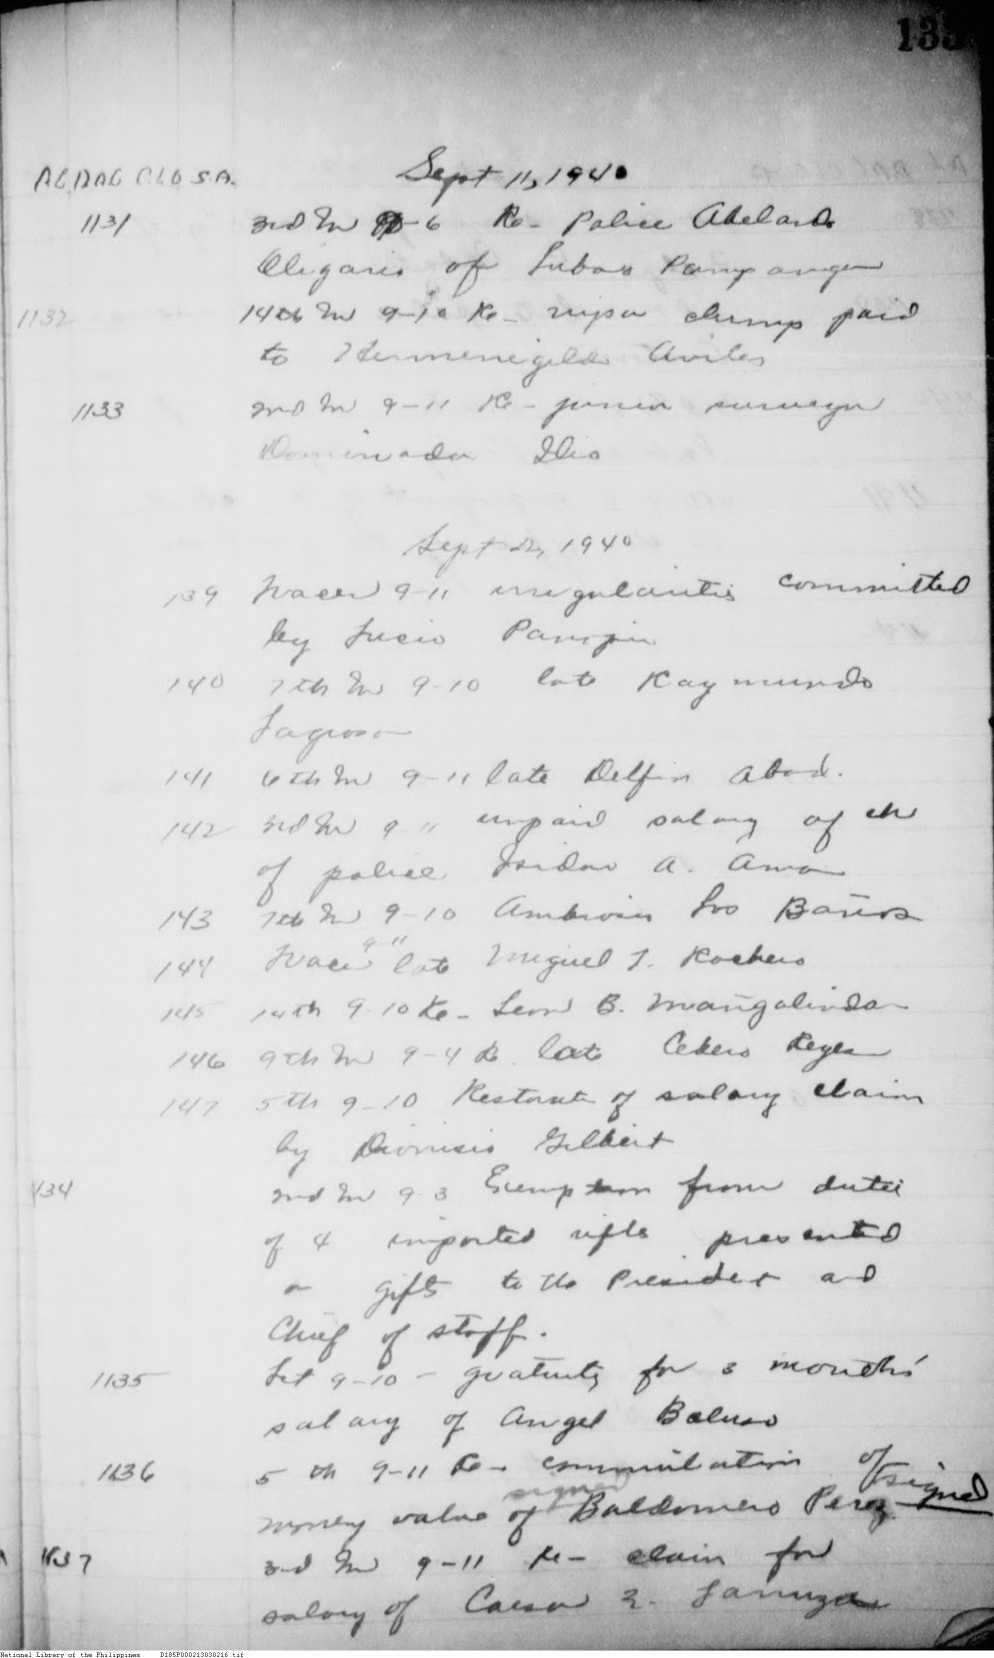 135
Sept 11, 1940
1131 3rd In 9-6 Re- Police Abelardo
Oligario of Lubao Pampanga
1132 14th In 9-10 Re- nipa clump paid
to Hermenegildo Aviles
1133 2nd In 9-11 Re- junior surveyor
Dominador Ilio
Sept 12, 1940
139 9-11 irregularities committed
by Lucio
140 7th In 9-10 late Raymundo
141 6th In 9-11 late Delfin Abad.
142 3rd In 9 " unpaid salary of
of police Isidro A.
143 7th In 9-10 Ambrosio Los Baños
144 9 " late Miguel T.
145 14th 9-10 Re- Leon B. Mangalindan
146 9th In 9-4 Re late Reyes
147 5th 9-10 of salary claim
by Dionisio Gilbert
134 2nd In 9-3 Exemption from duties
of 4 imported rifles presented
as gifts to the President and
Chief of staff.
1135 9-10 - gratuity for 3 months'
salary of Angel
1136 5th 9-11 Re- commutation of
signed
money value of Baldomero Perez signed
1137 3rd In 9-11 Re- claim for
salary of
National Library of the Philippines D185P000213830216.tif